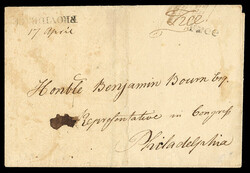 PROVIDENCE
17 April
Free
Honble Benjamin Bourn Esq.
Representative in Congress
Philadelphia